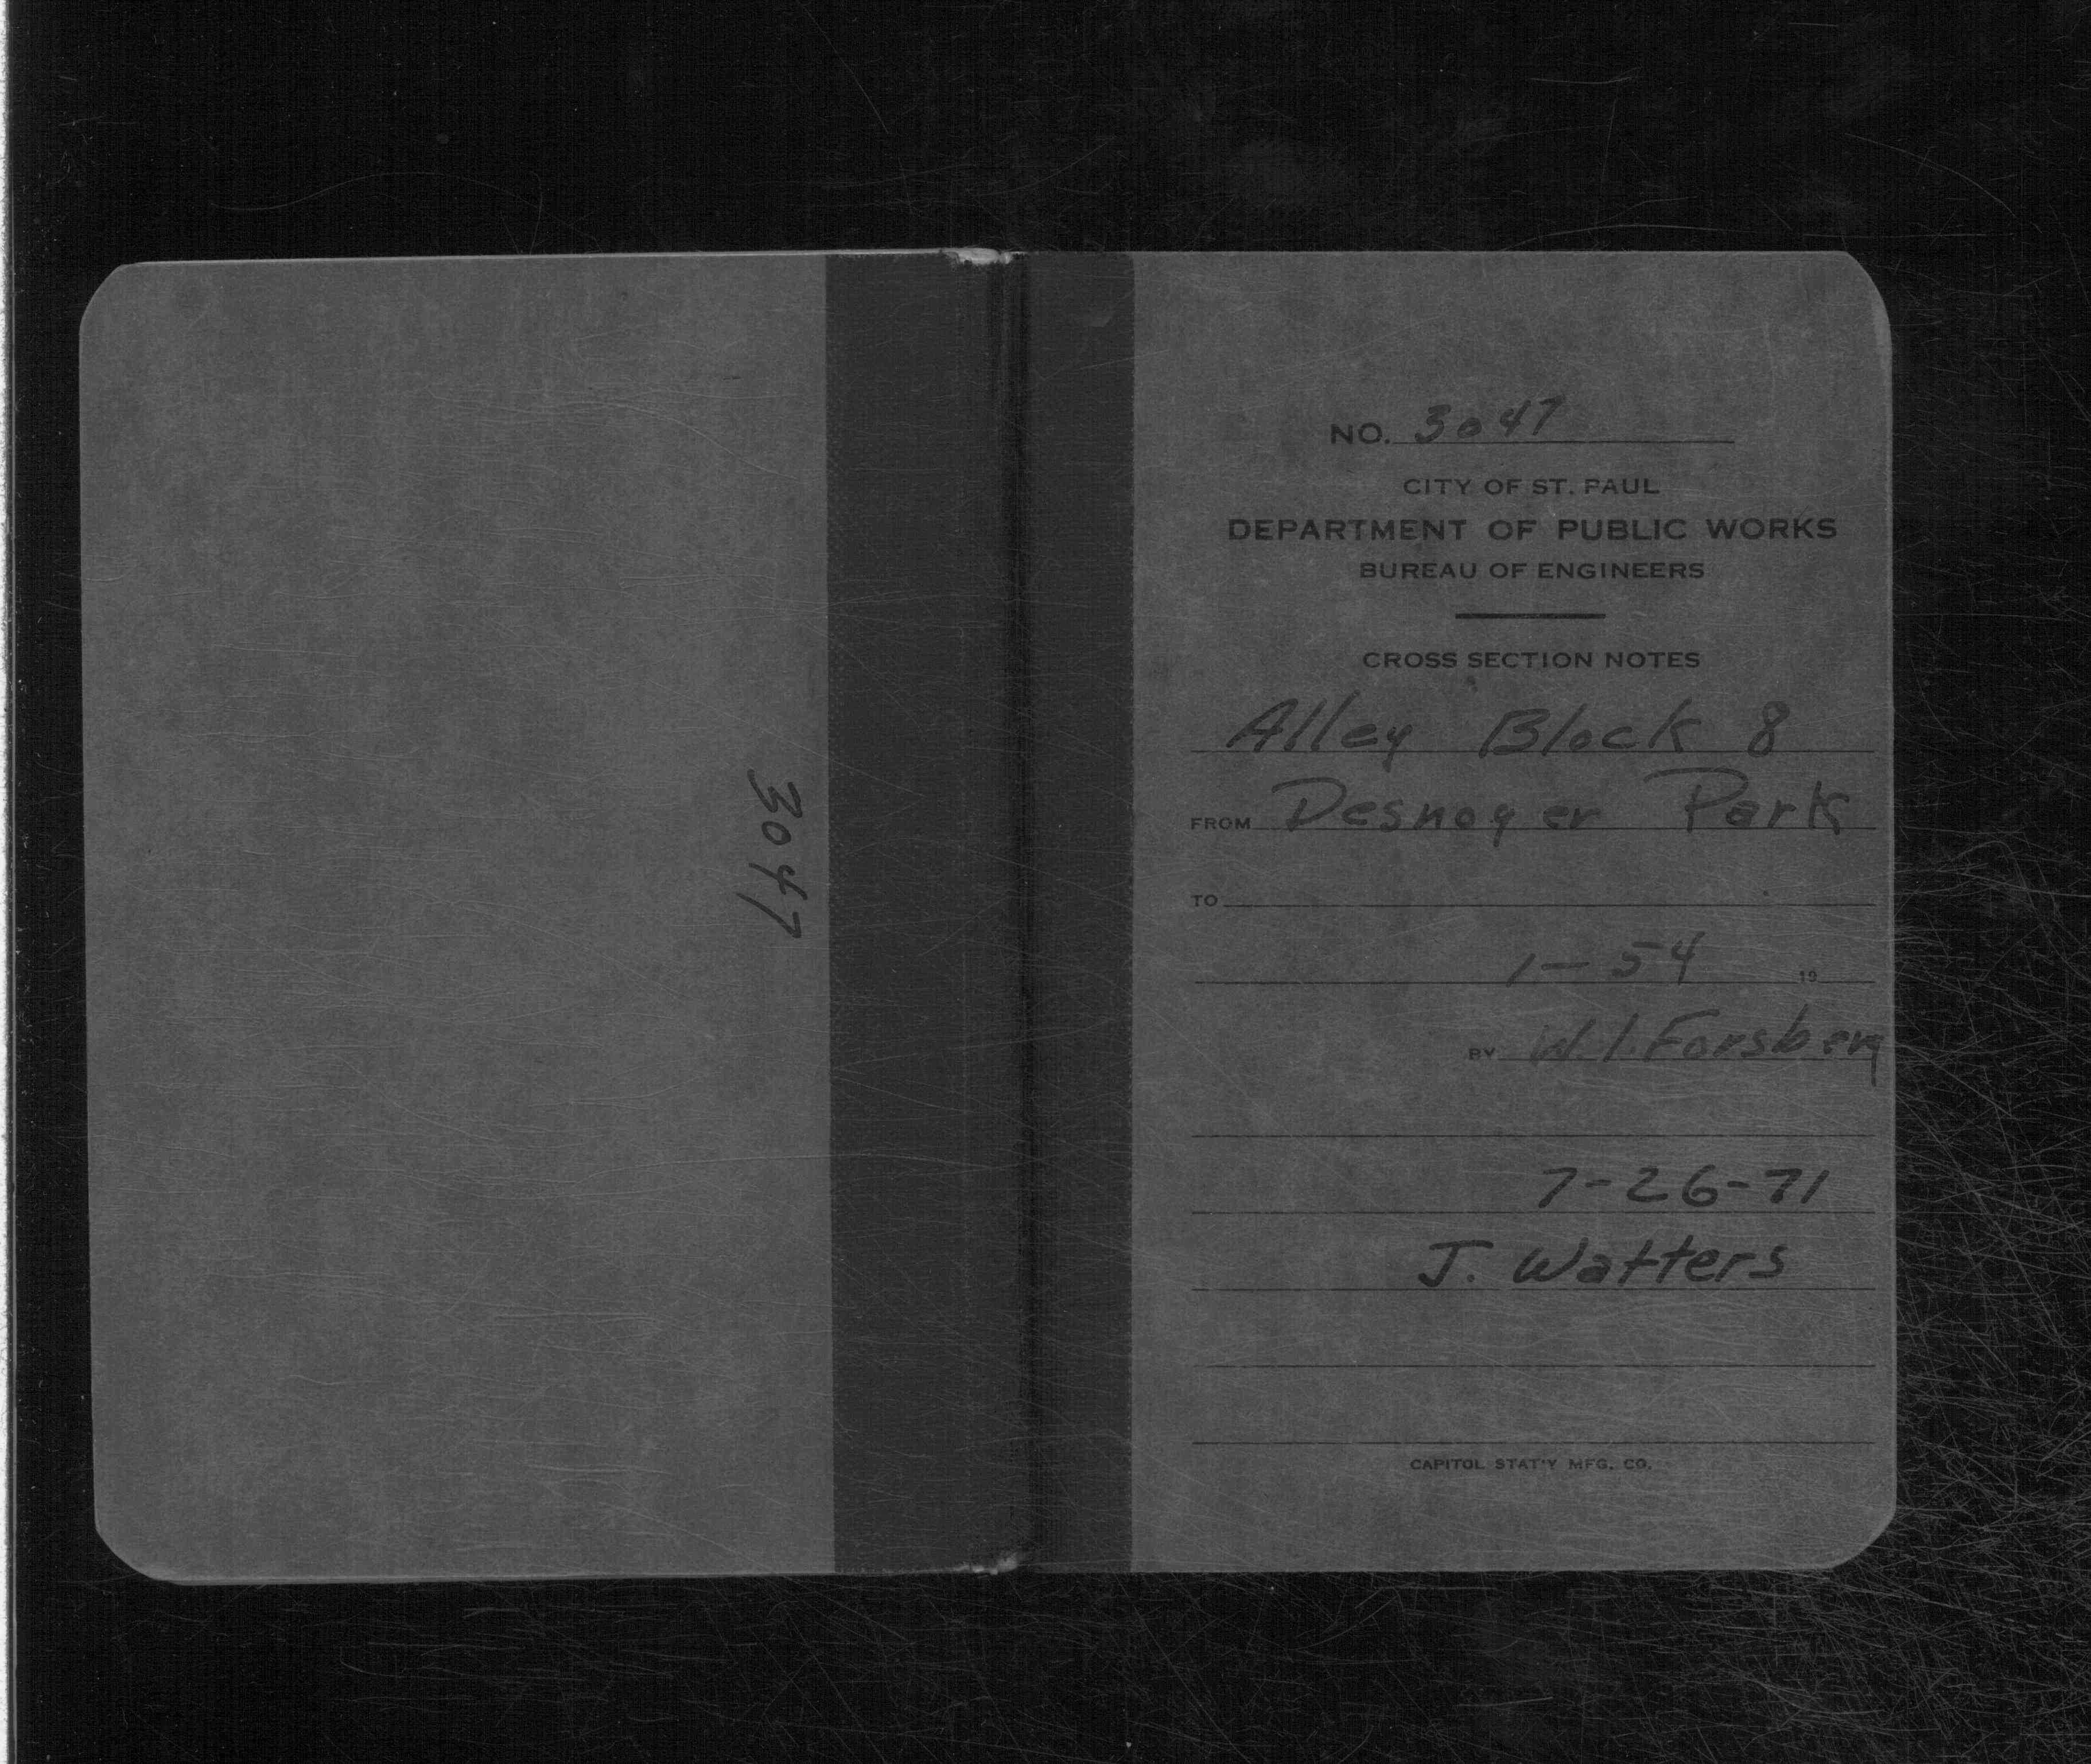 3047
NO. 3047
CITY OF ST. PAUL
DEPARTMENT OF PUBLIC WORKS
BUREAU OF ENGINEERS
CROSS SECTION NOTES
Alley Block 8
FROM Desnoyer Park
TO
1-54 19
BY W.I. Forsberg
7-26-71
J. Watters
CAPITOL STAT'Y MFG. CO.